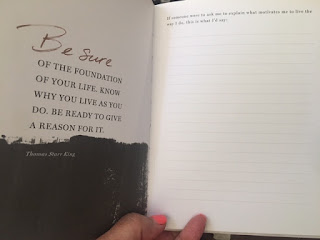 Be Sure
OF THE FOUNDATION
OF YOUR LIFE. KNOW
WHY YOU LIVE AS YOU
DO. BE READY TO GIVE
A REASON FOR IT.
Thomas Starr King
If someone were to ask me to explain what motivates me to live the
way I do, this is what I'd say: